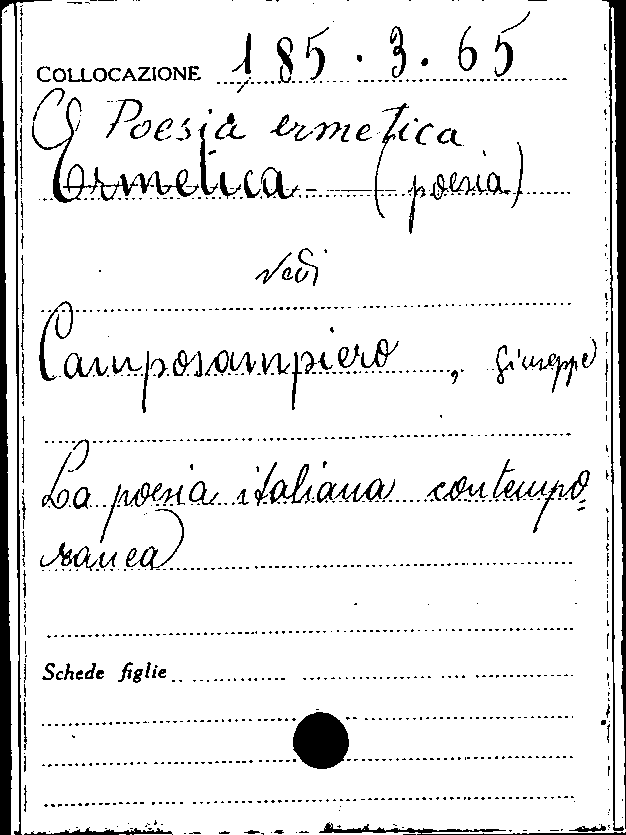 COLLOCAZIONE 185.3.65
Poesia ermetica
Ermetica - (poesia)
vedi
Camposampiero, Giuseppe
La poesia italiana contempo=
ranea
Schede figlie